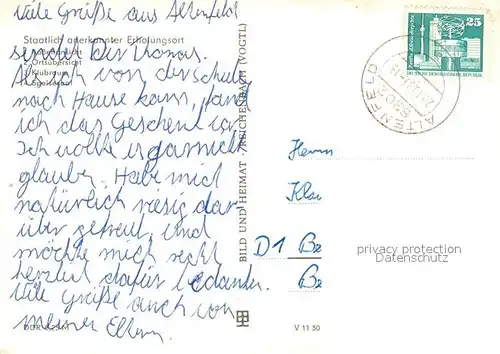 Viele Grüße aus Altenfeld
Staatlich anerkannter Erholungsort
sendet Dir Thomas.
Ortsübersicht
Als ich von der Schule
Klubraum
nach Hause kam, fand
Speisesaal
ich das Geschenk vor.
Ich wollte es garnicht
glauben. Habe mich
natürlich riesig dar-
über gefreut und
möchte mich recht
herzlich dafür bedanken.
Viele Grüße auch von
meinen Eltern.
BILD UND HEIMAT REICHENBACH (VOGTL)
25
DEUTSCHE DEMOKRATISCHE REPUBLIK
ALTENFELD
Herrn
Kla
D 1 Be
Be
privacy protection
Datenschutz
V 11 50